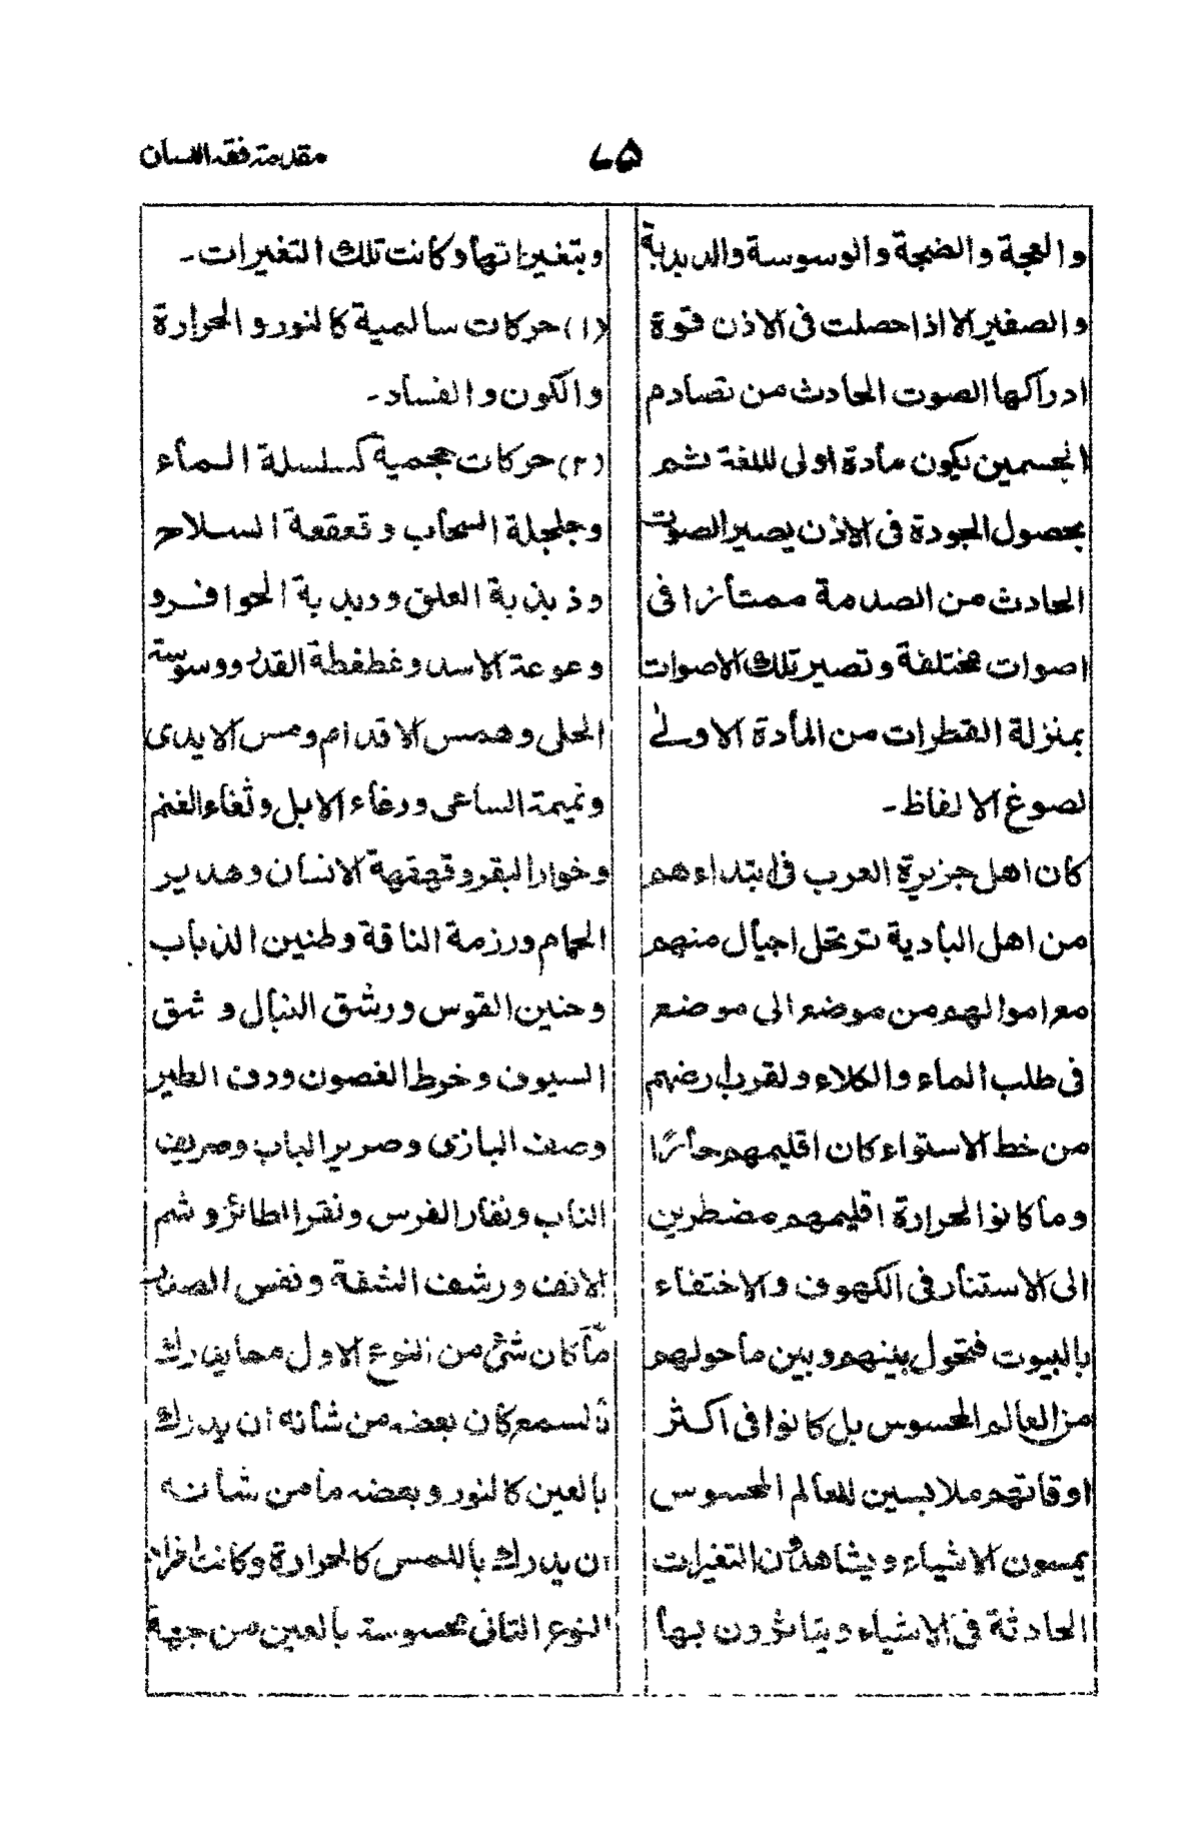 مقدمة فقه اللسان
٦٥
والعجة والضجة والوسوسة والدبدبة
والصفير الا اذا حصلت فى الاذن قوة
ادراكها الصوت الحادث من تصادم
الجسمين يكون مادة اولى لللغة ثم
بحصول الجودة فى الاذن يصير الصوت
الحادث من الصدمة ممتازا فى
اصوات مختلفة وتصير تلك الاصوات
بمنزلة القطرات من المادة الاولىٰ
لصوغ الالفاظ۔
كان اهل جزيرة العرب فى ابتداءهم
من اهل البادية ترتحل اجيال منهم
مع اموالهم من موضع الى موضع
فى طلب الماء والكلاء ولقرب ارضهم
من خط الاستواء كان اقليمهم حارًا
وما كانوا لحرارة اقليمهم مضطرين
الى الاستتار فى الكهوف والاختفاء
بالبيوت فتحول بينهم وبين ما حولهم
من العالم المحسوس بل كانوا فى اكثر
اوقاتهم ملابسين للعالم المحسوس
يمسون الاشياء ويشاهدون التغيرات
الحادثة فى الاشياء ويتاثرون بها
وبتغيراتها وكانت تلك التغيرات۔
(١) حركات سالمية كالنور والحرارة
والكون والفساد۔
(٢) حركات حجمية كسلسلة الماء
وجلجلة السحاب وقعقعة السلاح
وذبذبة العلق ودبدبة الحوافر و
وعوعة الاسد وغطفطة القدر ووسوسة
الحلى وهمس الاقدام ومس الايدى
ونميمة الساعى ورغاء الابل وثغاء الغنم
وخوار البقر وقهقهة الانسان وهدير
الحمام ورزمة الناقة وطنين الذباب
وحنين القوس ورشق النبال وشق
السيوف وخرط الغصون ودف الطير
وصف البازى وصرير الباب وصريف
الناب ونفار الفرس ونقر الطائر وشم
الانف ورشف الشفة ونفس الصدر
ما كان شئ من النوع الاول مما يدرك
بالسمع كان بعضه من شأنه ان يدرك
بالعين كالنور وبعضه ما من شانه
ان يدرك باللمس كالحرارة وكانت افراد
النوع الثانى محسوسة بالعين من جهة